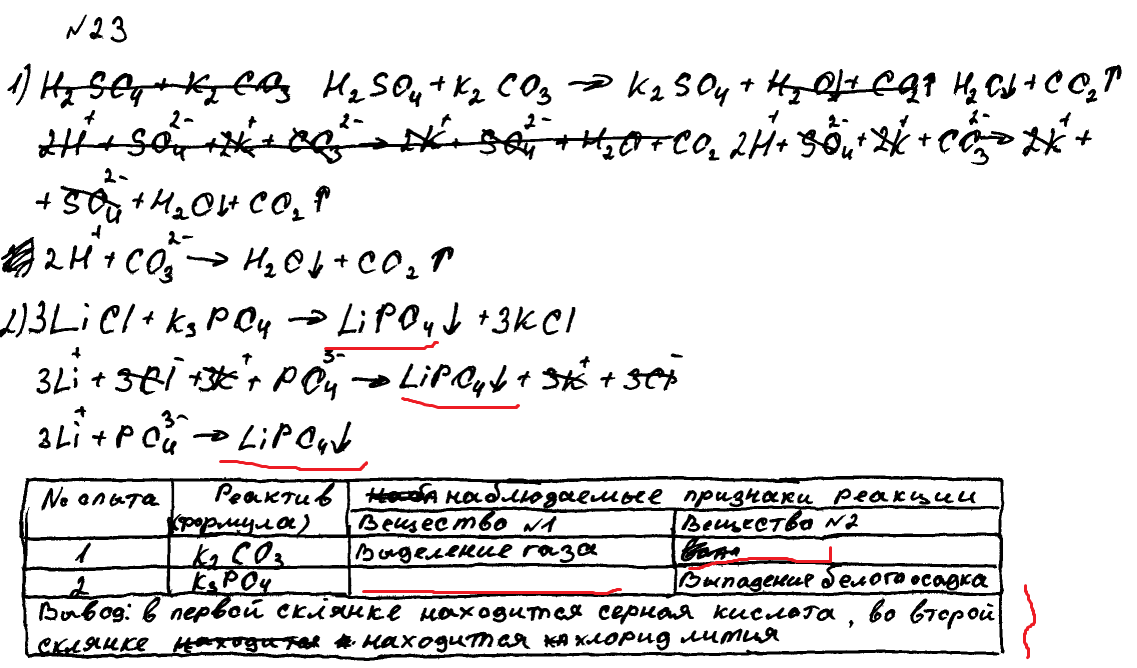 N23
1) H₂SO₄ + K₂CO₃ H₂SO₄ + K₂CO₃ → K₂SO₄ + H₂O↓ + CO₂↑ H₂O↓ + CO₂↑
2H⁺ + SO₄²⁻ + 2K⁺ + CO₃²⁻ → 2K⁺ + SO₄²⁻ + H₂O + CO₂ 2H⁺ + SO₄²⁻ + 2K⁺ + CO₃²⁻ → 2K⁺ +
+ SO₄²⁻ + H₂O↓ + CO₂↑
2H⁺ + CO₃²⁻ → H₂O↓ + CO₂↑
2) 3LiCl + K₃PO₄ → LiPO₄↓ + 3KCl
3Li⁺ + 3Cl⁻ + 3K⁺ + PO₄³⁻ → LiPO₄↓ + 3K⁺ + 3Cl⁻
3Li⁺ + PO₄³⁻ → LiPO₄↓
№ опыта Реактив (формула) наблюдаемые признаки реакции
Вещество N1 Вещество N2
1 K₂CO₃ Выделение газа
2 K₃PO₄ Выпадение белого осадка
Вывод: в первой склянке находится серная кислота, во второй
склянке находится находится хлорид лития